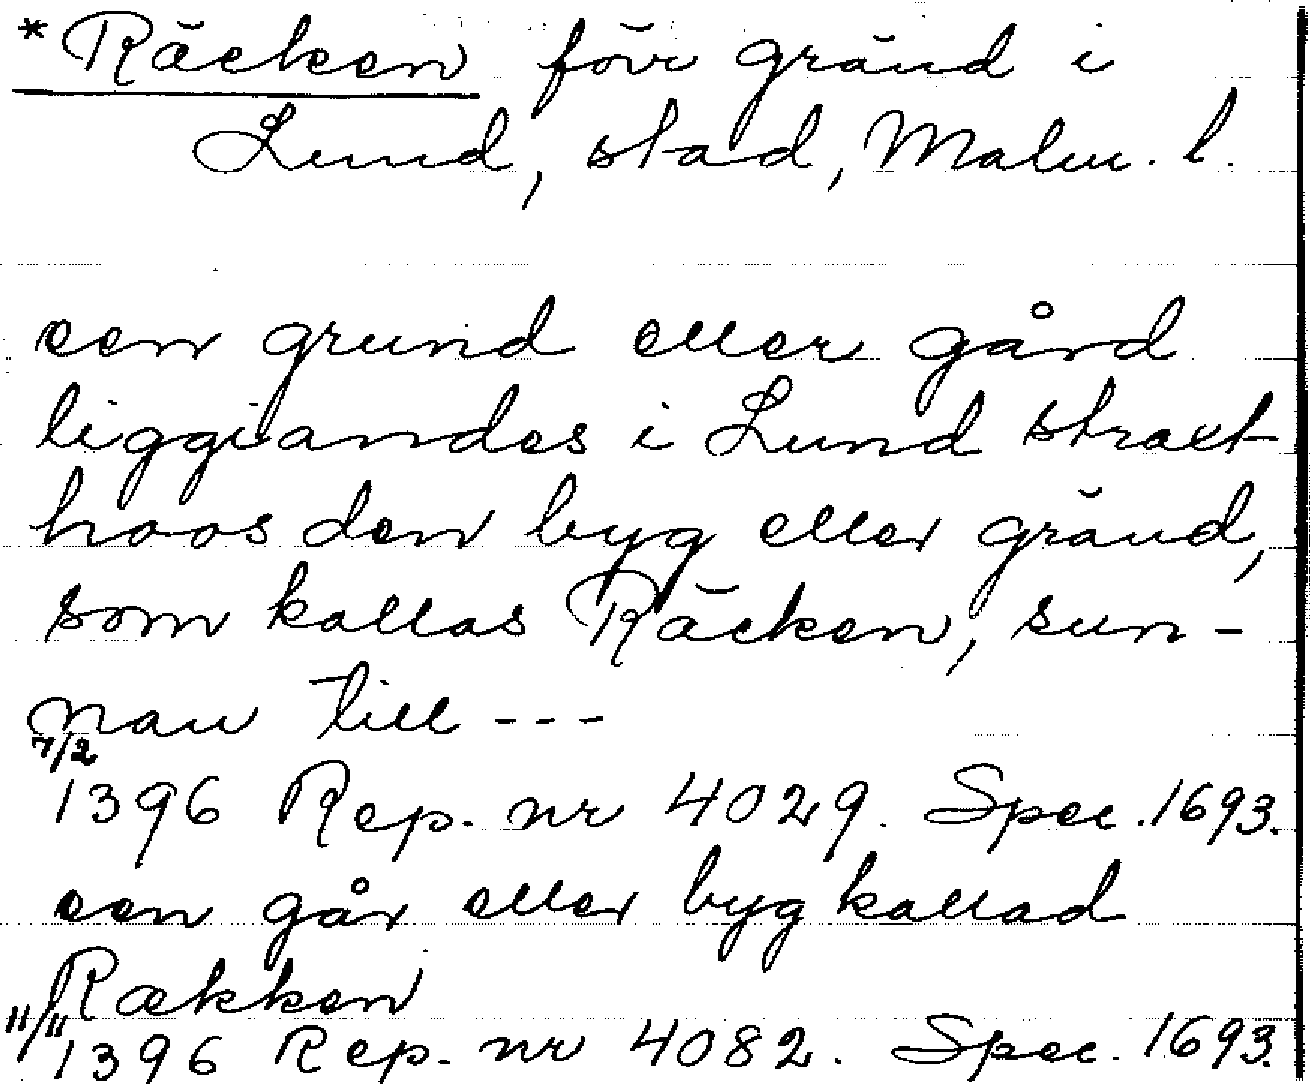 * Räcken förr gränd i
Lund, stad, Malm. l.
een grund eller gård
liggiandes i Lund straxt
hoos den byg eller gränd,
som kallas Räcken, sun-
nan till ---
7/2
1396 Rep. nr 4029. Spec. 1693.
een går eller byg kallad
Rækken
11/11
1396 Rep. nr 4082. Spec. 1693.